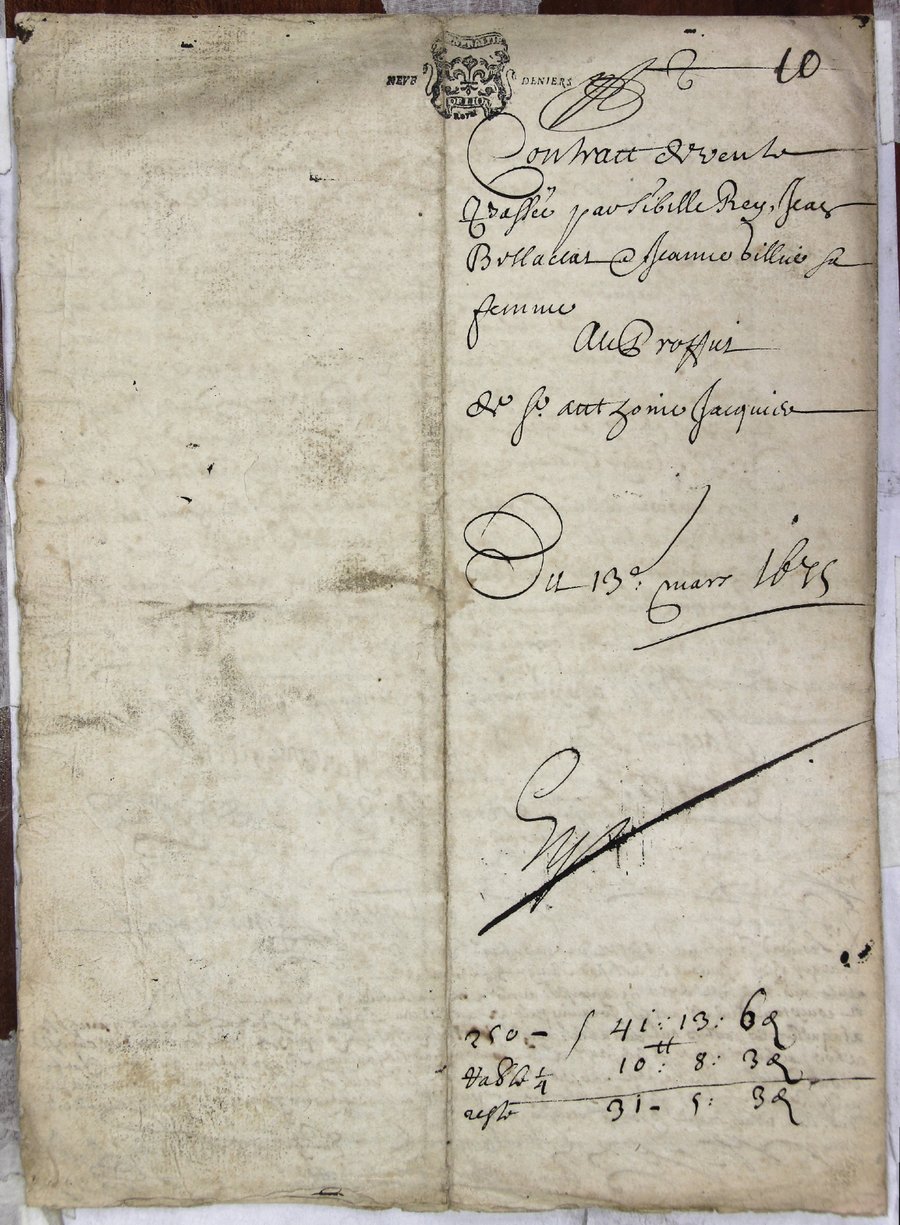 NEUF DENIERS
10
Contract de vente
passée par Sibille Rey, Jean
Bellaclat & Jeanne billie sa
femme
Au Proffict
de Sr. Anthoine Jacquier
Du 13e. mars 1675
250 - 41: 13: 6 d
10tt: 8: 3 d
reste 31 - 5: 3 d